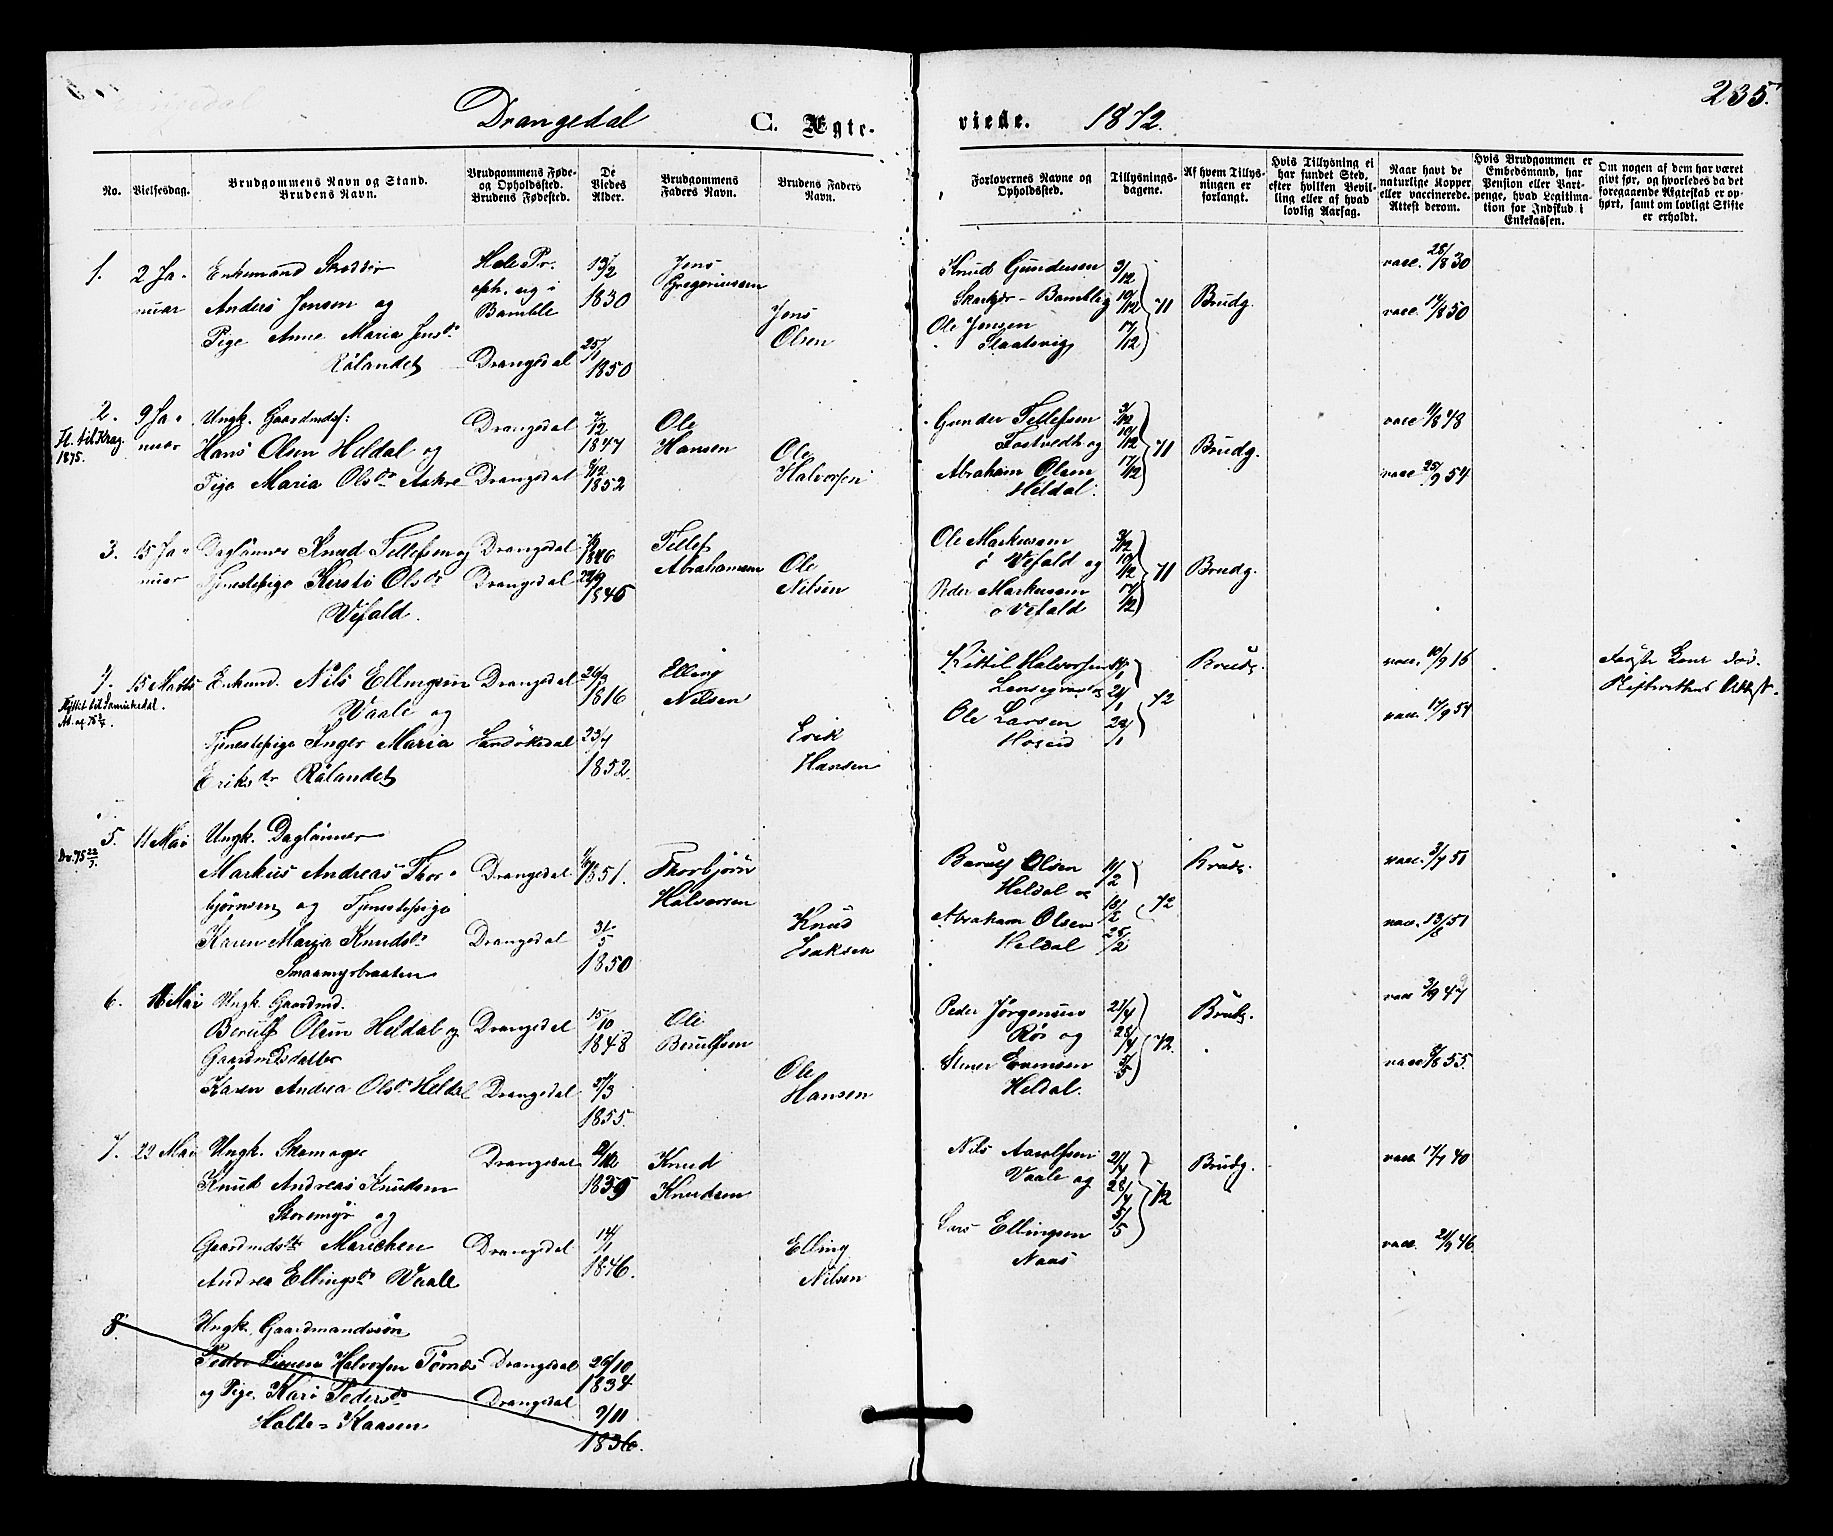 Drangedal C. Ægte- viede. 1872. 235.
No.
Vielsesdag.
Brudgommens Navn og Stand.
Brudens Navn.
Brudgommens Føde-
og Opholdssted.
Brudens Fødested.
De
Viedes
Alder.
Brudgommens
Faders Navn.
Brudens Faders
Navn.
Forlovernes Navne og
Opholdssted.
Tillysnings-
dagene.
Af hvem Tillys-
ningen er
forlangt.
Hvis Tillysning ei
har fundet Sted,
efter hvilken Bevil-
ling eller af hvad
lovlig Aarsag.
Naar havt de
naturlige Kopper
eller vaccinerede.
Attest derom.
Hvis Brudgommen er
Embedsmand, har
Pension eller Vart-
penge, hvad Legitima-
tion for Indskud i
Enkekassen.
Om nogen af dem har været
givt før, og hvorledes da det
foregaaende Ægteskab er op-
hørt, samt om lovligt Skifte
er erholdt.
1.
2 Ja-
nuar
Enkemand
Anders Jonsen og
Pige Anne Maria Jensdr
Rølandet
Bamble
Drangedal
1830
25/11
1850
Jens
Gregoriussen
Jens
Olsen
Knud Gundersen
Bamble og
Ole Jensen
3/12
10/12
17/12
71
Brudg.
vacc. 28/8 30
vacc. 14/8 50
2.
Fl. til Krag.
1875.
9 Ja-
nuar
Ungk. Gaardmdsf:
Hans Olsen Heldal og
Pige Maria Olsdr Aakre
Drangedal
Drangedal
7/12
1847
1852
Ole
Hansen
Ole
Halvorsen
Gunder Tellefsen
Tostvedt og
Abraham Olsen
Heldal.
3/12
10/12
17/12
71
Brudg.
vacc 48
vacc 25/9 54
3.
15 Ja-
nuar
Daglønner Knud Tellefsen og
Tjenestepige Kersti Olsdr
Vefald.
Drangedal
Drangedal
1846
22/9
1845
Tellef
Abrahamsen
Ole
Nilsen
Ole Markussen
i Vefald og
Peder Markussen
Vefald
3/12
10/12
17/12
71
Brudg.
4.
15 Marts
Enkmd. Nils Ellingsen
Vaale og
Tjenestepige Inger Maria
Eriksdr Rølandet
Drangedal
Sandøkedal
26/3
1816
23/4
1852.
Elling
Nilsen
Erik
Hansen
Kittil Halvorsen
Ole Larsen
Hoseid
72
Brudg.
vacc. 19/9 16
vacc. 17/9 54
Første Kone død.
Skifterettens Attest.
5.
11 Mai
Ungk. Daglønner
Markus Andreas Thor-
bjørnsen og Tjenestepige
Karen Maria Knudsdr
Smaamyrbraaten
Drangedal
Drangedal
1851.
31/5
1850
Thorbjørn
Halvorsen
Knud
Isaksen
Berulf Olsen
Heldal og
Abraham Olsen
Heldal
11/2
18/2
25/2
72
Brudg.
vacc. 3/7 51
vacc. 13/8 51
6.
Mai
Ungk. Gaardmd.
Berulf Olsen Heldal og
Gaardmdsdatter
Karen Andrea Olsdr Heldal
Drangedal
Drangedal
15/10
1848
1855.
Ole
Berulfsen
Ole
Hansen
Peder Jørgensen
Rør og
Heldal.
21/4
28/4
5/5
72.
Brudg.
vacc 3/9 47
vacc 55.
7.
22 Mai
Ungk. Skomager
Knud Andreas Knudsen
Storemyr og
Gaardmdsdtr Marichen
Andrea Ellingsdr Vaale
Drangedal
Drangedal
1839
14/1
1846.
Knud
Knudsen
Elling
Nilsen
Nils Aarolfsen
Vaale og
Lars Ellingsen
Naas
21/4
28/4
5/5
72
Brudg.
vacc. 17/7 40
vacc. 21/9 46
8.
Ungk. Gaardmandssøn
Peder Simen Halvorsen Tørnes
og Pige Kari Pedersdr
Holte-Kaasen
Drangedal
Drangedal
26/10
1834
9/11
1836.